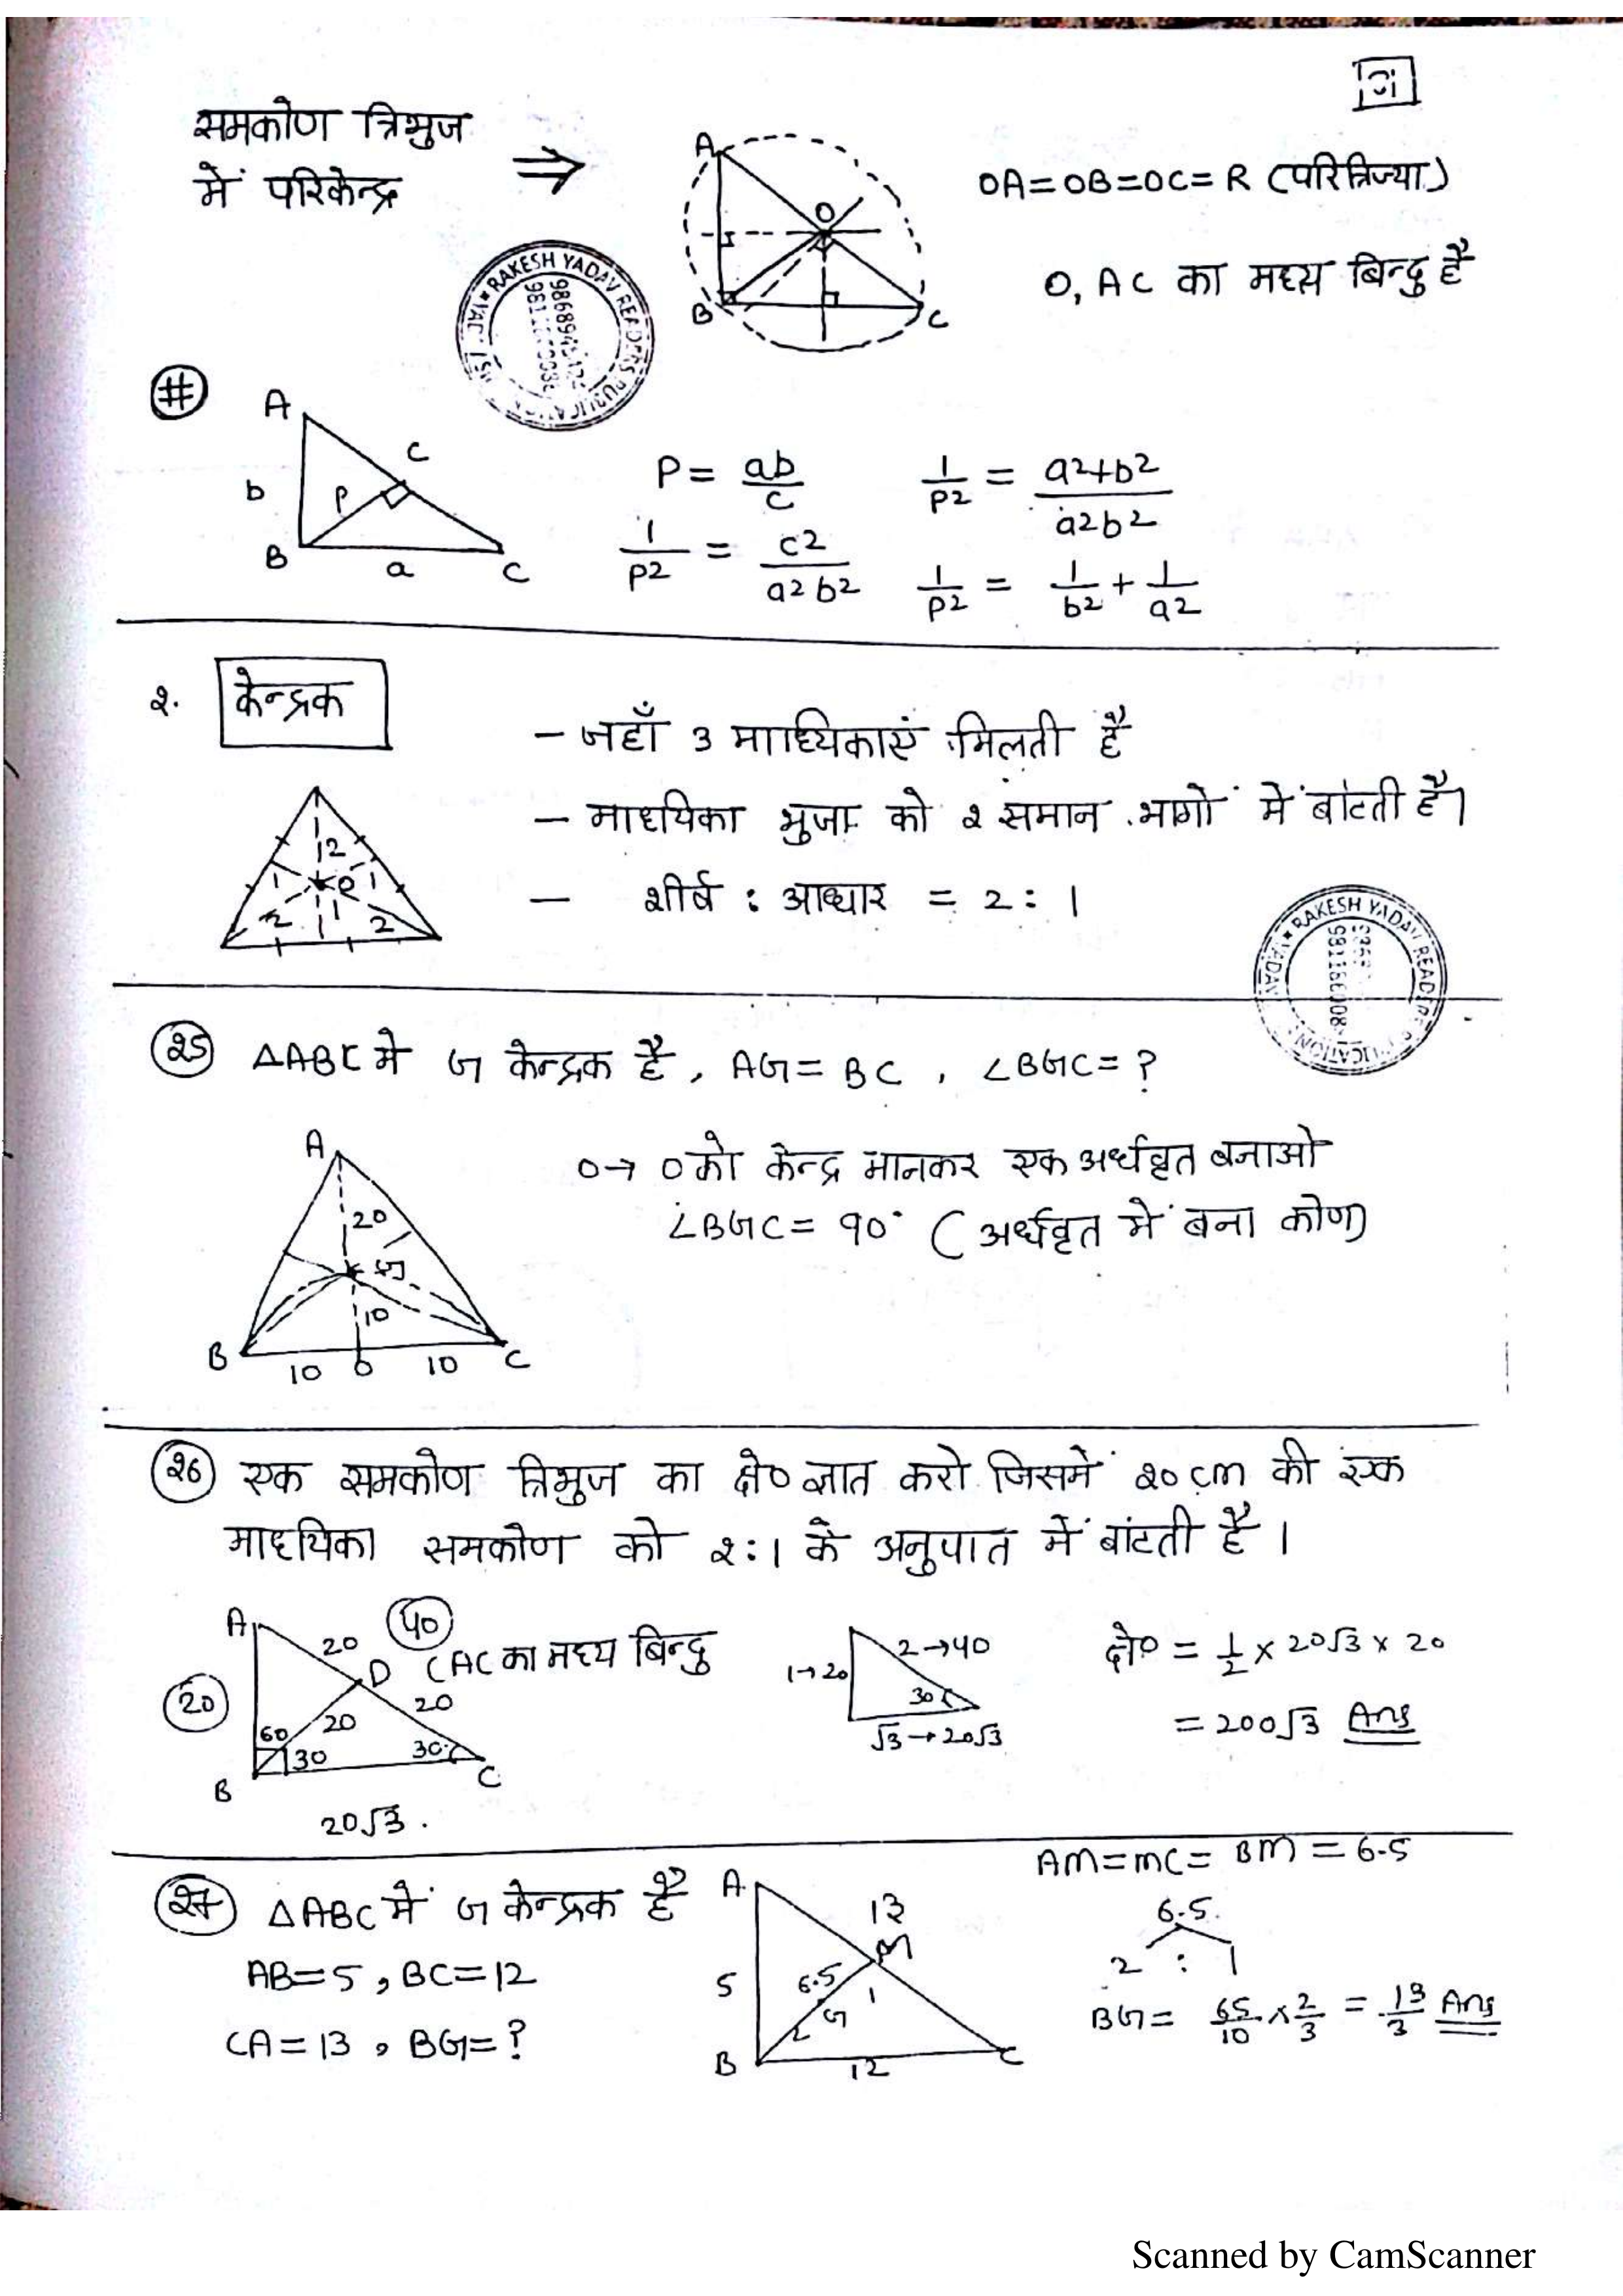 समकोण त्रिभुज
में परिकेन्द्र ⇒
A
O
B
C
OA=OB=OC=R (परित्रिज्या)
O, AC का मध्य बिन्दु है
RAKESH YADAV READERS PUBLICATION
#
A
C
b
P
B
a
C
P = ab/c
1/P2 = a2+b2/a2b2
1/P2 = c2/a2b2
1/P2 = 1/b2 + 1/a2
२. केन्द्रक
– जहाँ 3 माध्यिकाएं मिलती है
– माध्यिका भुजा को २ समान भागों में बांटती है।
– शीर्ष : आधार = 2 : 1
2
1 1
2 1 2
RAKESH YADAV READERS PUBLICATION
२5 △ABC मे G केन्द्रक है, AG = BC, ∠BGC = ?
A
20
G
10
B
10 O 10
C
O→ O को केन्द्र मानकर एक अर्धवृत बनाओ
∠BGC = 90° (अर्धवृत में बना कोण)
२6 एक समकोण त्रिभुज का क्षे० ज्ञात करो जिसमें २0 cm की एक
माध्यिका समकोण को २:1 के अनुपात में बांटती है।
A
20
40
D (AC का मध्य बिन्दु
20
20
20
60
30
30
B
C
20√3.
1→20
2→40
30
√3→20√3
क्षे० = 1/2 × 20√3 × 20
= 200√3 Ans
२7 △ABC में G केन्द्रक है
AB=5, BC=12
CA=13, BG=?
A
13
M
5
6.5
1
G
2
B
12
C
AM=MC=BM=6.5
6.5
2 : 1
BG= 65/10 × 2/3 = 13/3 Ans
Scanned by CamScanner